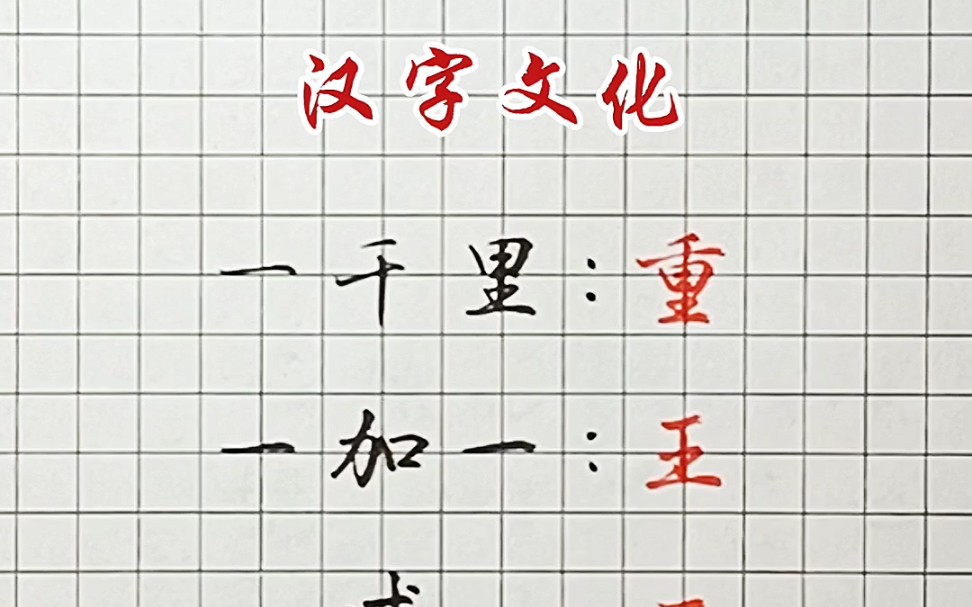 汉字文化
一千里：重
一加一：王